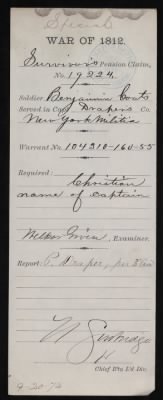 Special
WAR OF 1812.
Survivor's Pension Claim,
No. 19224
Soldier Benjamin Coats
Served in Capt Drapers Co.
New York Militia
Warrant No. 104210-160-55
Required: Christian
name of captain
Examiner.
Report: P. Draper, per
Chief B'ty L'd Div.
9-20-72